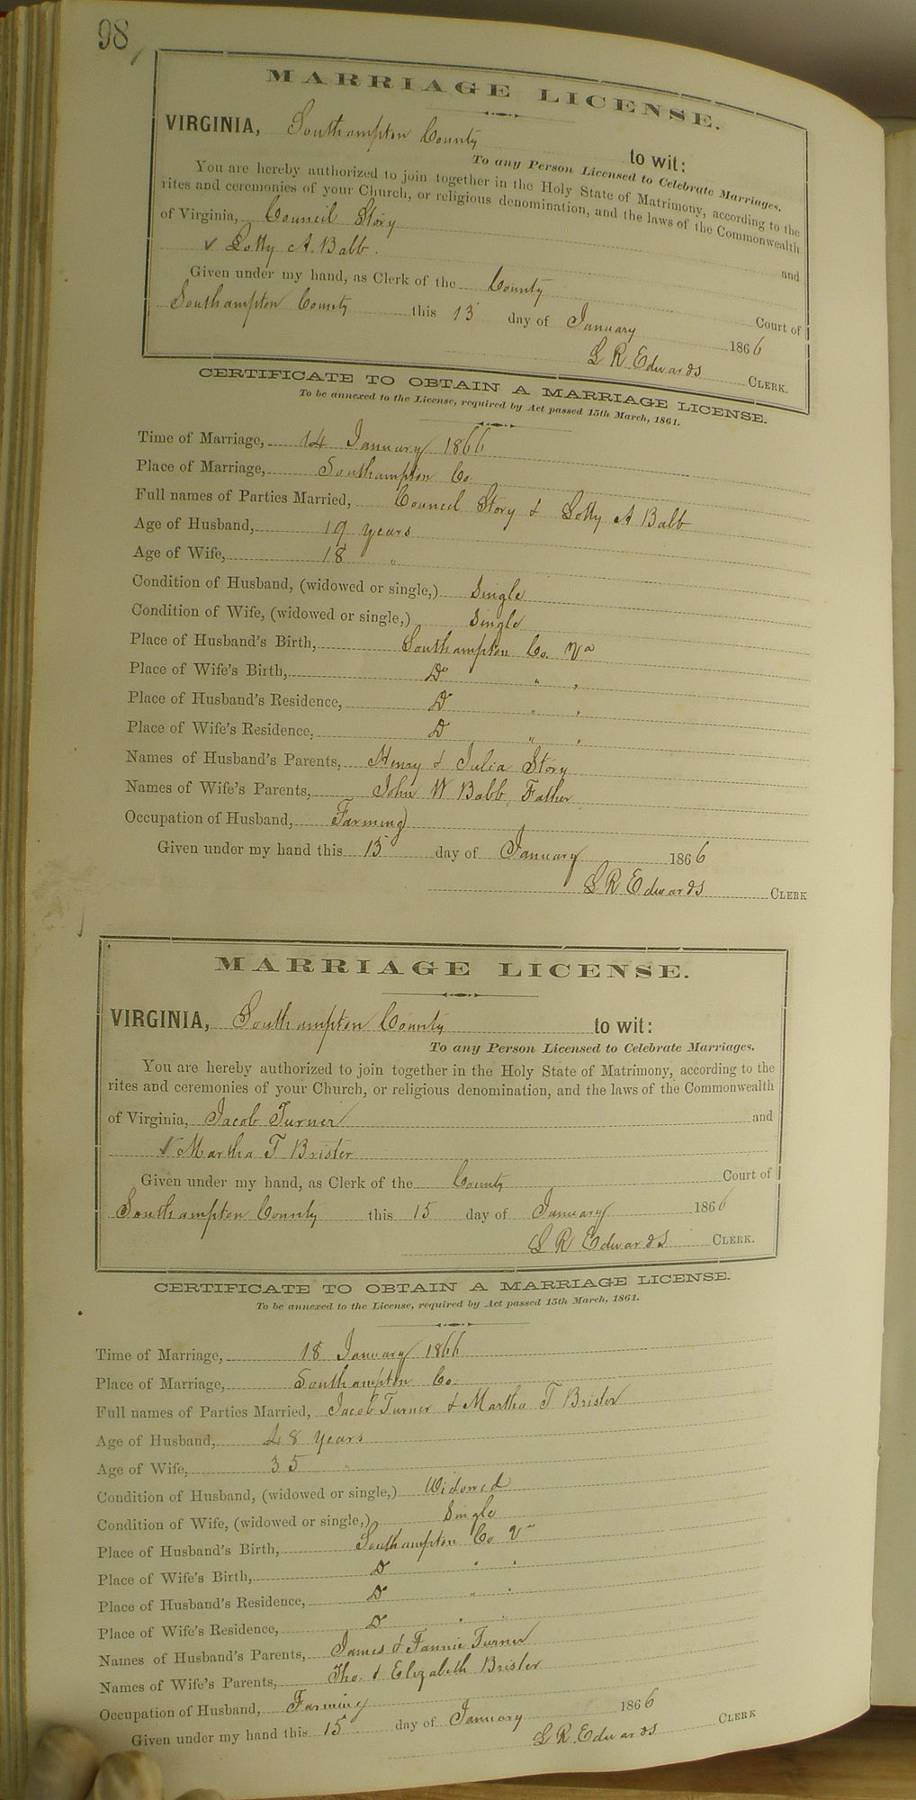 98
MARRIAGE LICENSE.
VIRGINIA, Southampton County to wit:
To any Person Licensed to Celebrate Marriages.
You are hereby authorized to join together in the Holy State of Matrimony, according to the
rites and ceremonies of your Church, or religious denomination, and the laws of the Commonwealth
of Virginia, Council Story and
✓ Lotty A. Babb.
Given under my hand, as Clerk of the County Court of
Southampton County this 13 day of January 1866
L R Edwards CLERK.
CERTIFICATE TO OBTAIN A MARRIAGE LICENSE.
To be annexed to the License, required by Act passed 15th March, 1861.
Time of Marriage, 14 January 1866
Place of Marriage, Southampton Co.
Full names of Parties Married, Council Story & Lotty A Babb
Age of Husband, 19 years
Age of Wife, 18 "
Condition of Husband, (widowed or single,) Single
Condition of Wife, (widowed or single,) Single
Place of Husband's Birth, Southampton Co. Va
Place of Wife's Birth, Do " "
Place of Husband's Residence, Do " "
Place of Wife's Residence, Do " "
Names of Husband's Parents, Henry & Julia Story
Names of Wife's Parents, John W Babb, Father
Occupation of Husband, Farming
Given under my hand this 13 day of January 1866
L R Edwards CLERK
MARRIAGE LICENSE.
VIRGINIA, Southampton County to wit:
To any Person Licensed to Celebrate Marriages.
You are hereby authorized to join together in the Holy State of Matrimony, according to the
rites and ceremonies of your Church, or religious denomination, and the laws of the Commonwealth
of Virginia, Jacob Turner and
✓ Martha T Brister
Given under my hand, as Clerk of the County Court of
Southampton County this 15 day of January 1866
L R Edwards CLERK.
CERTIFICATE TO OBTAIN A MARRIAGE LICENSE.
To be annexed to the License, required by Act passed 15th March, 1861.
Time of Marriage, 18 January 1866
Place of Marriage, Southampton Co.
Full names of Parties Married, Jacob Turner & Martha T Brister
Age of Husband, 48 years
Age of Wife, 35 "
Condition of Husband, (widowed or single,) Widowed
Condition of Wife, (widowed or single,) Single
Place of Husband's Birth, Southampton Co Va
Place of Wife's Birth, Do " "
Place of Husband's Residence, Do " "
Place of Wife's Residence, Do " "
Names of Husband's Parents, James & Fannie Turner
Names of Wife's Parents, Tho. & Elizabeth Brister
Occupation of Husband, Farming
Given under my hand this 15 day of January 1866
L R. Edwards CLERK